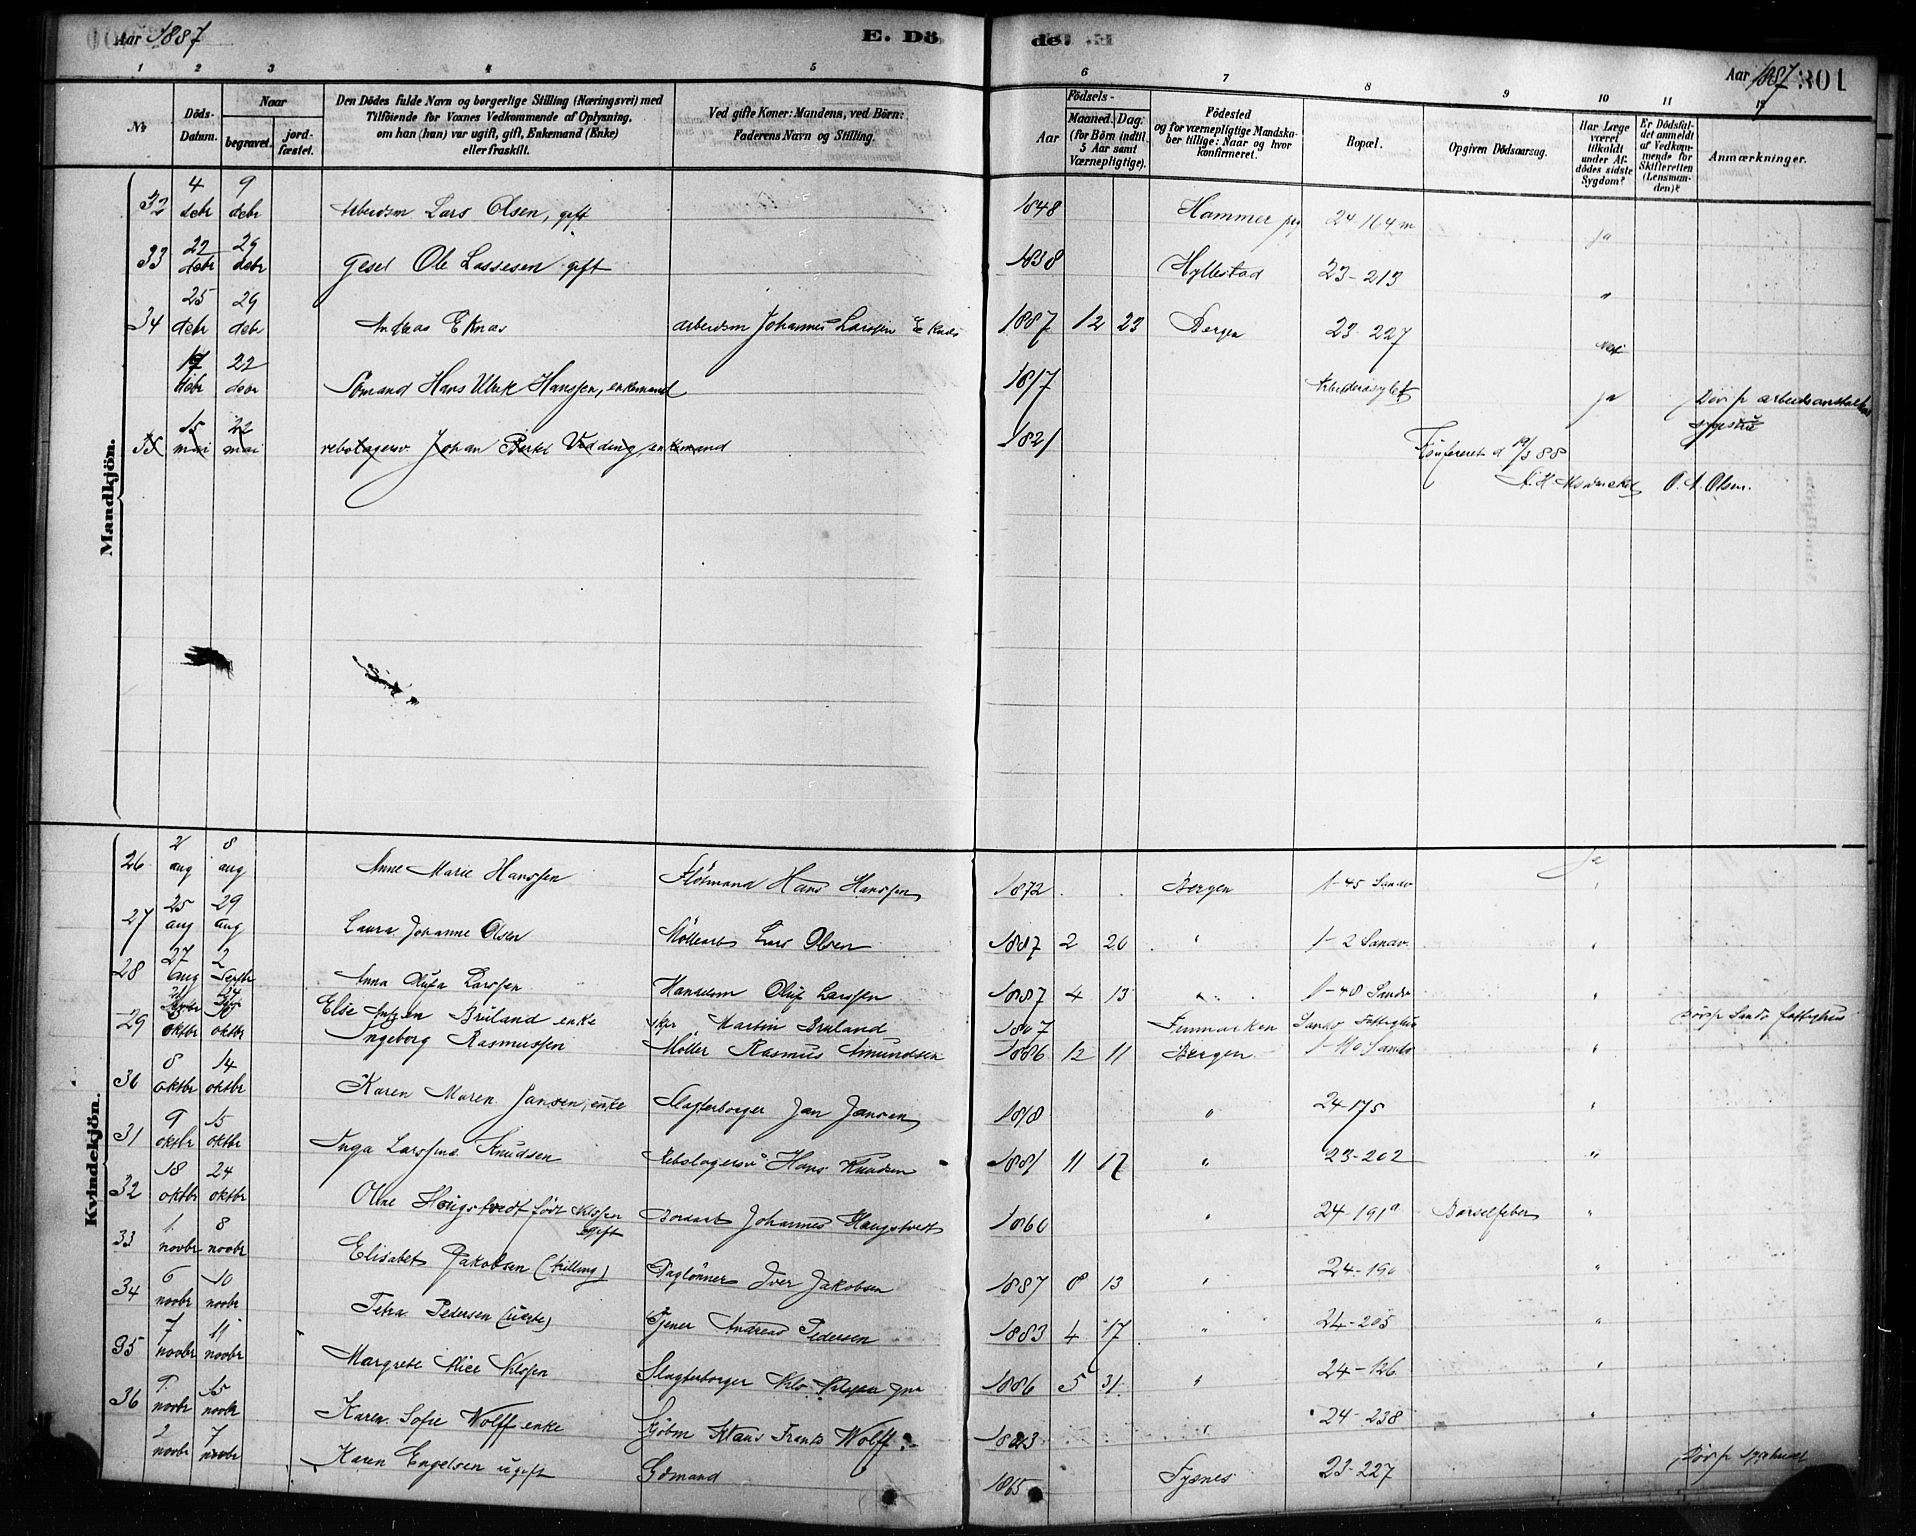 Aar 1887
E. Dö
de.
Aar 1887
301
1 2 3 4 5 6 7 8 9 10 11 12
No
Döds-Datum.
Naar
begravet.
jord-fæstet.
Den Dödes fulde Navn og borgerlige Stilling (Næringsvei) med
Tilföiende for Voxnes Vedkommende af Oplysning,
om han (hun) var ugift, gift, Enkemand (Enke)
eller fraskilt.
Ved gifte Koner: Mandens, ved Börn:
Faderens Navn og Stilling.
Födsels-
Aar
Maaned. Dag.
(for Börn indtil
5 Aar samt
Værnepligtige).
Födested
og for værnepligtige Mandska-
ber tillige: Naar og hvor
konfirmeret.
Bopæl.
Opgiven Dödsaarsag.
Har Læge
været
tilkaldt
under Af-
dödes sidste
Sygdom?
Er Dödsfal-
det anmeldt
af Vedkom-
mende for
Skifteretten
(Lensman-
den)?
Anmærkninger.
Mandkjön.
32 4 debr 9 debr Arbeidsm Lars Olsen, gift 1848 Hammer 24-164 ja
33 22 debr 29 debr Gesel Ole Lassesen gift 1838 Hyllestad 23-213 "
34 25 debr 29 debr Andreas Eknæs arbeidsm Johannes Larssen Eknæs 1887 12 23 Bergen 23-227 nei
17 debr 22 debr Sömand Hans Ulrik Hanssen, enkemand 1817 Arbeiderasylet ja Död pr arbeidsanstalten
35 15 mai 22 mai Johan Vedding, enkemand 1821
Konfereret d 19/3 88
O. A. Olsen.
Kvindekjön.
26 2 aug 8 aug Anne Marie Hanssen Flötmand Hans Hanssen 1872 Bergen 1-45 Sandv ja
27 25 aug 29 aug Laura Johanne Olsen Möllearb Lars Olsen 1887 2 20 " 1-2 Sandv. "
28 27 aug 2 Septbr Anna Olufa Larssen Handsm Oluf Larssen 1887 4 13 " 1-48 Sandv "
Else Bruland enke Martin Bruland 1807 Finmarken Sandv Fattighus Död pr Sandv fattighus
29 oktbr oktbr Ingeborg Rasmussen Möller Rasmus Amundsen 1886 12 11 Bergen 1-110 Sandv "
30 8 oktbr 14 oktbr Karen Maren Jansen, enke Slagterborger Jan Jansen 1818 " 24-175 "
31 9 oktbr 15 oktbr Inga Larssine Knudsen Rebslagersv Hans Knudsen 1881 11 17 " 23-202 "
32 18 oktbr 24 oktbr Oline Haugstvedt födt gift Bordarb Johannes Haugstvedt 1860 " 24-191a Barselfeber "
33 1 novbr 8 novbr Elisabet Jakobsen (trilling) Daglönner Iver Jakobsen 1887 8 13 " 24-190 "
34 6 novbr 10 novbr Petra Pedersen (uægte) Tjener Andreas Pedersen 1883 4 17 " 24-205 "
35 7 novbr 11 novbr Margrete Alice Slagterborger 1886 5 31 " 24-126 "
36 9 novbr 15 novbr Karen Sofie Wolff enke Klaus Frantz Wolff 1823 " 24-238 "
2 novbr 7 novbr Karen Engelsen ugift Gdmand 1865 Tysnes 23-227 Död pr sygehuset